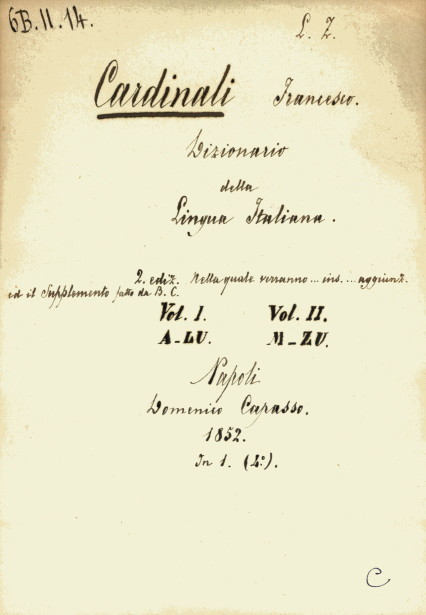 6B.II.14.
L. Z.
Cardinali Francesco.
Dizionario
della
Lingua Italiana.
2. ediz. Nella quale verranno ... ins. ... aggiunz.
ed il Supplemento fatto da B. C.
Vol. I. Vol. II.
A-LU. M-ZU.
Napoli
Domenico Capasso.
1852.
In 1. (4°).
C